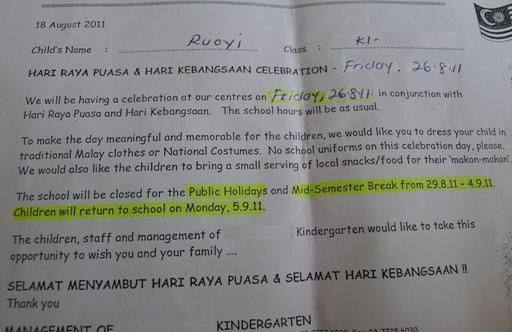 18 August 2011
Child's Name : Ruoyi Class : K1-
HARI RAYA PUASA & HARI KEBANGSAAN CELEBRATION - Friday. 26.8.11
We will be having a celebration at our centres on Friday, 26.8.11 in conjunction with
Hari Raya Puasa and Hari Kebangsaan. The school hours will be as usual.
To make the day meaningful and memorable for the children, we would like you to dress your child in
traditional Malay clothes or National Costumes. No school uniforms on this celebration day, please.
We would also like the children to bring a small serving of local snacks/food for their 'makan-makan'.
The school will be closed for the Public Holidays and Mid-Semester Break from 29.8.11 - 4.9.11.
Children will return to school on Monday, 5.9.11.
The children, staff and management of Kindergarten would like to take this
opportunity to wish you and your family ....
SELAMAT MENYAMBUT HARI RAYA PUASA & SELAMAT HARI KEBANGSAAN !!
Thank you
MANAGEMENT OF KINDERGARTEN